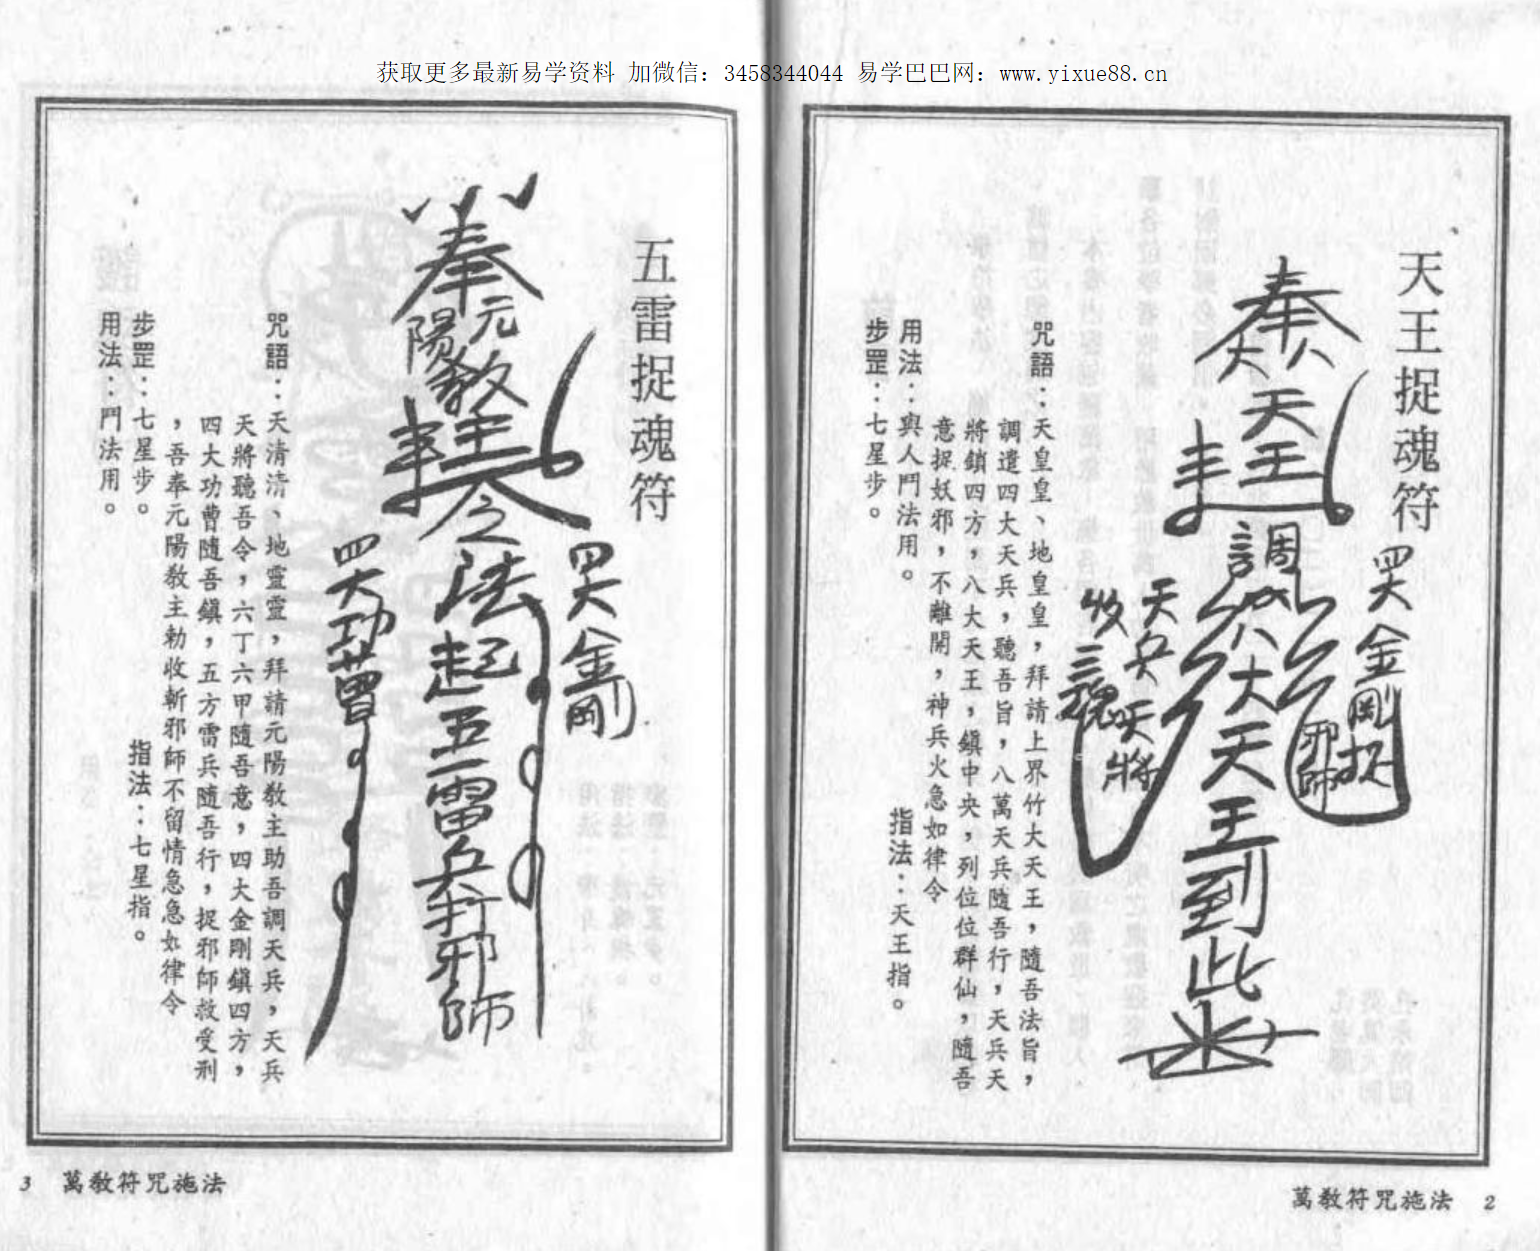 获取更多最新易学资料 加微信：3458344044 易学巴巴网：www.yixue88.cn
天王捉魂符
奉
天王
調
八大天王到此
四大金剛捉
邪師
天兵天將
收三魂
咒語：天皇皇、地皇皇，拜請上界竹大天王，隨吾法旨，
調遣四大天兵，聽吾旨，八萬天兵隨吾行，天兵天
將鎖四方，八大天王，鎮中央，列位位群仙，隨吾
意捉妖邪，不離開，神兵火急如律令
用法：與人鬥法用。
指法：天王指。
步罡：七星步。
萬教符咒施法 2
五雷捉魂符
奉
元陽教主
令之法起五雷兵斬邪師
四大金剛
四大功曹
咒語：天清清、地靈靈，拜請元陽教主助吾調天兵，天兵
天將聽吾令，六丁六甲隨吾意，四大金剛鎮四方，
四大功曹隨吾鎮，五方雷兵隨吾行，捉邪師救受刑
，吾奉元陽教主勅收斬邪師不留情急急如律令
步罡：七星步。
指法：七星指。
用法：鬥法用。
3 萬教符咒施法